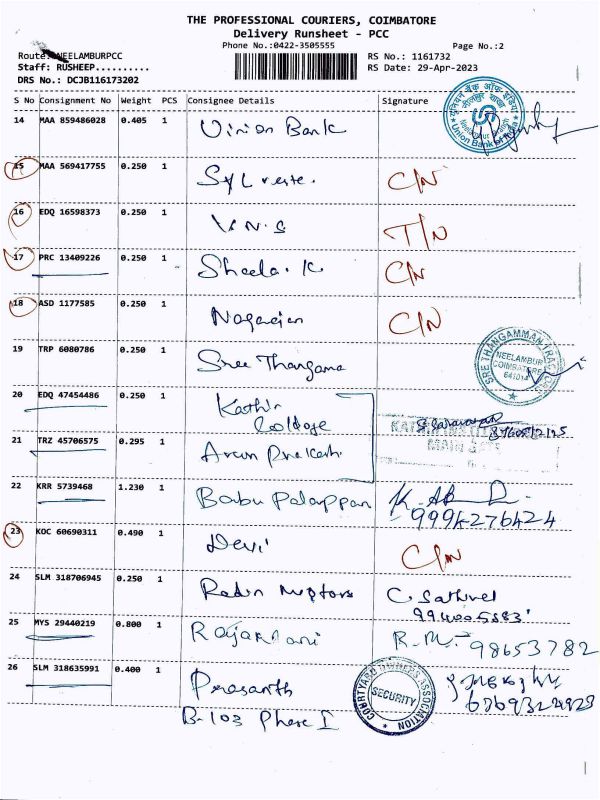 THE PROFESSIONAL COURIERS, COIMBATORE
Delivery Runsheet - PCC
Phone No.:0422-3505555 Page No.:2
Route: NEELAMBURPCC RS No.: 1161732
Staff: RUSHEEP.......... RS Date: 29-Apr-2023
DRS No.: DCJB116173202
S No Consignment No Weight PCS Consignee Details Signature
14 MAA 859486028 0.405 1 Union Bank
Union Bank of India
15 MAA 569417755 0.250 1 C/N
16 EDQ 16598373 0.250 1 V.N.S T/N
17 PRC 13409226 0.250 1 Sheela. K C/N
18 ASD 1177585 0.250 1 Nagarajan C/N
19 TRP 6080786 0.250 1 Sree Thangama
SREE THANGAMMAN TRACTORS
NEELAMBUR
COIMBATORE
641014
20 EDQ 47454486 0.250 1 Kathir College
21 TRZ 45706575 0.295 1 Arun Prakash
MAIN GATE
22 KRR 5739468 1.230 1 Babu Palappan
9994276424
23 KOC 60690311 0.490 1 Devi C/N
24 SLM 318706945 0.250 1 Motors C. Sathivel
25 MYS 29440219 0.800 1 Rajarani R.M. 98653782
26 SLM 318635991 0.400 1 Prasanth
COURTYARD OWNERS ASSOCIATION
SECURITY
B-103 Phase I